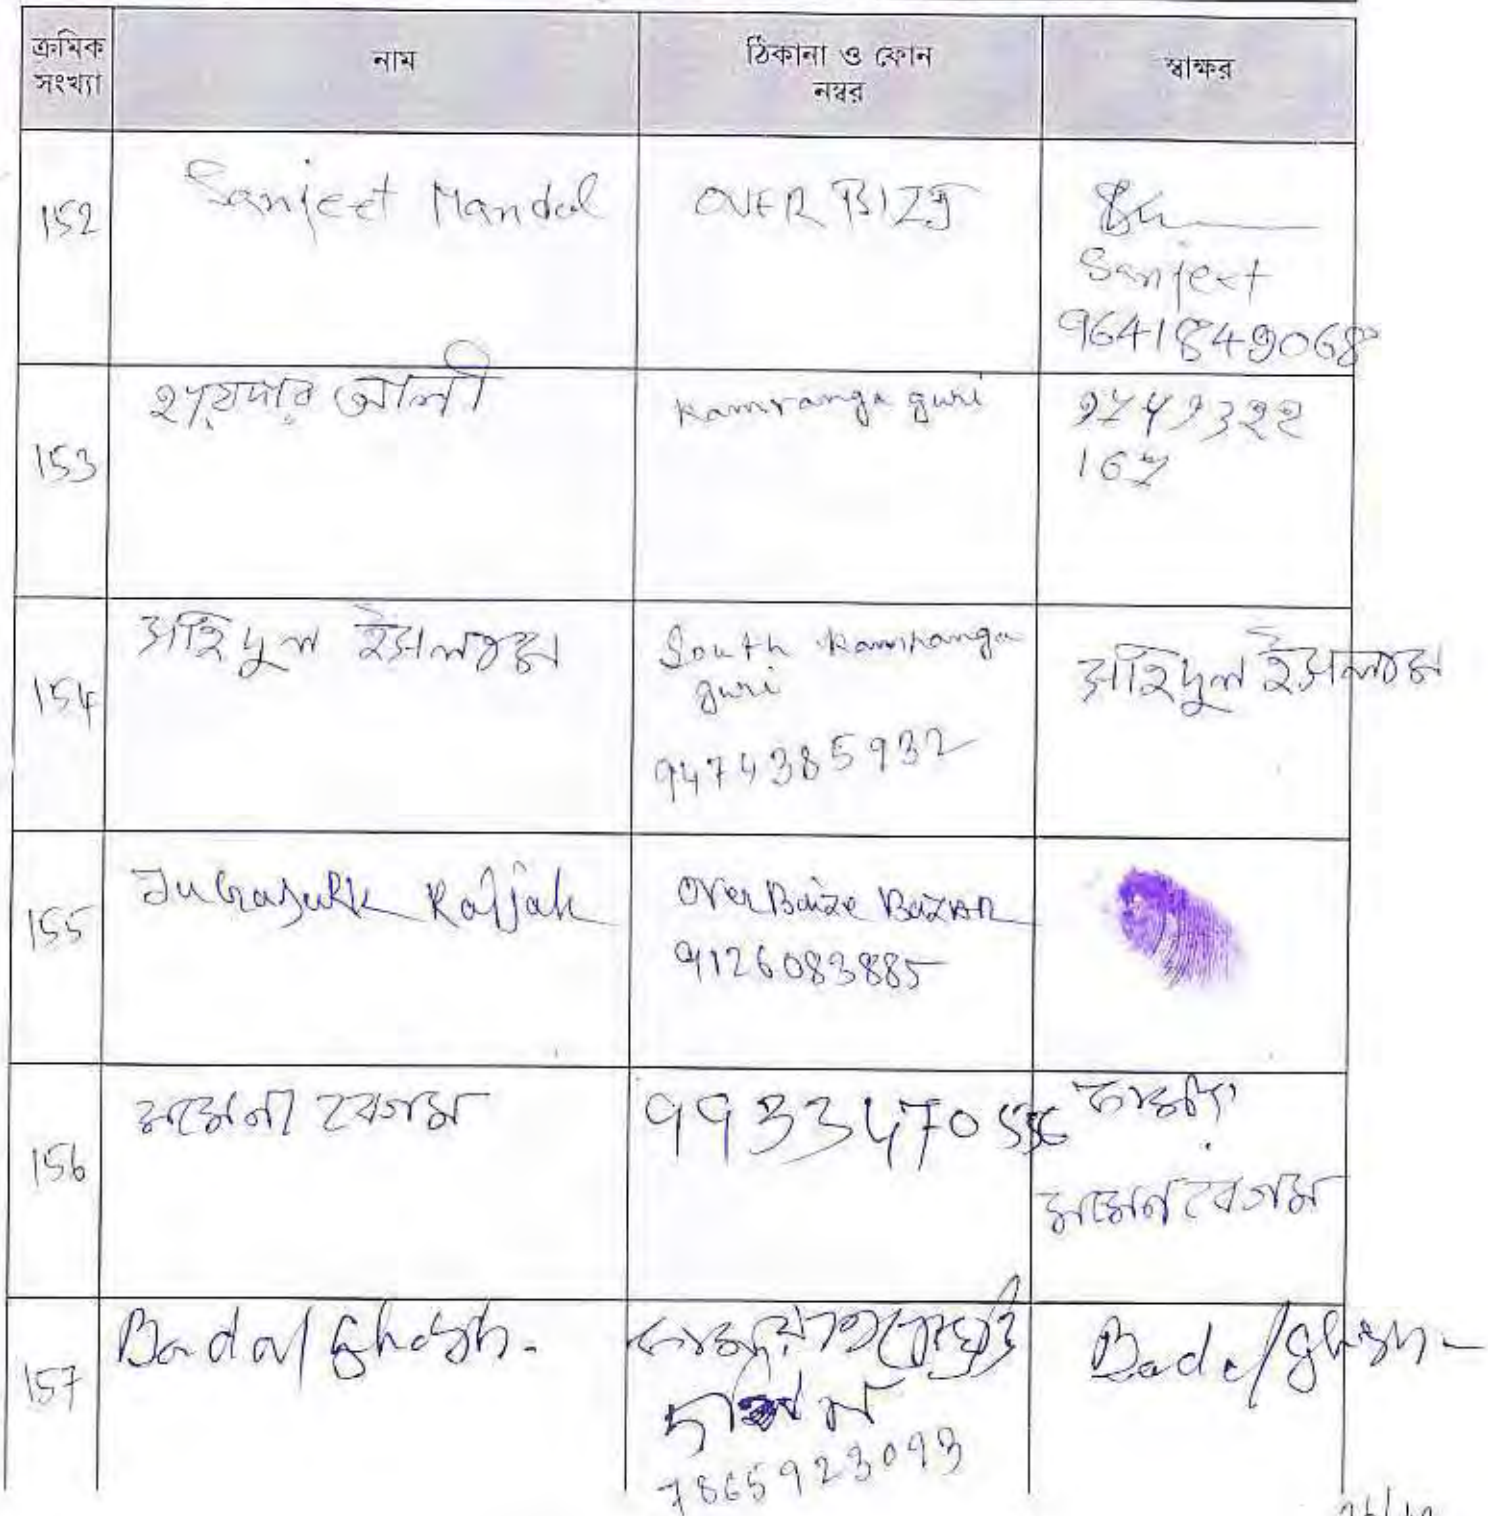 ক্রমিক সংখ্যা
নাম
ঠিকানা ও ফোন
নম্বর
স্বাক্ষর
152
Sanjeet Mandal
OVER BIZ
Sanjeet
9641849068
153
হায়দার আলী
Kamranga guri
9749322
167
154
সহিদুল ইসলাম
South Kamranga
guri
9474385932
সহিদুল ইসলাম
155
Over Baize Bazar
9126083885
156
বেগম
99334705
বেগম
157
Badal Ghosh.
7865923093
Badal Ghosh